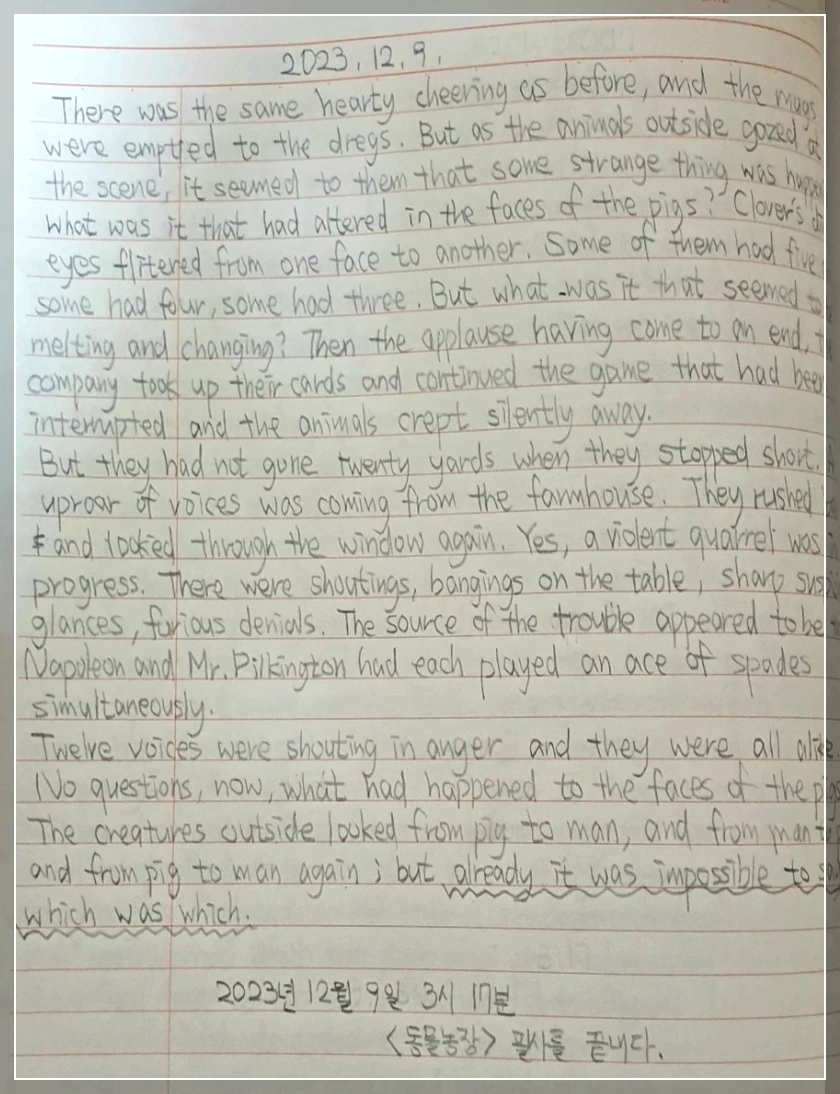 2023. 12. 9.
There was the same hearty cheering as before, and the mugs
were emptied to the dregs. But as the animals outside gazed at
the scene, it seemed to them that some strange thing was
what was it that had altered in the faces of the pigs? Clover's
eyes flitered from one face to another. Some of them had five
some had four, some had three. But what was it that seemed to
melting and changing? Then the applause having come to an end,
company took up their cards and continued the game that had been
interrupted and the animals crept silently away.
But they had not gone twenty yards when they stopped short.
uproar of voices was coming from the farmhouse. They rushed
and looked through the window again. Yes, a violent quarrel was
progress. There were shoutings, bangings on the table, sharp
glances, furious denials. The source of the trouble appeared to be
Napoleon and Mr. Pilkington had each played an ace of spades
simultaneously.
Twelve voices were shouting in anger and they were all alike.
No questions, now, what had happened to the faces of the pigs
The creatures outside looked from pig to man, and from man to
and from pig to man again; but already it was impossible to
which was which.
2023년 12월 9일 3시 17분
<동물농장> 필사를 끝내다.